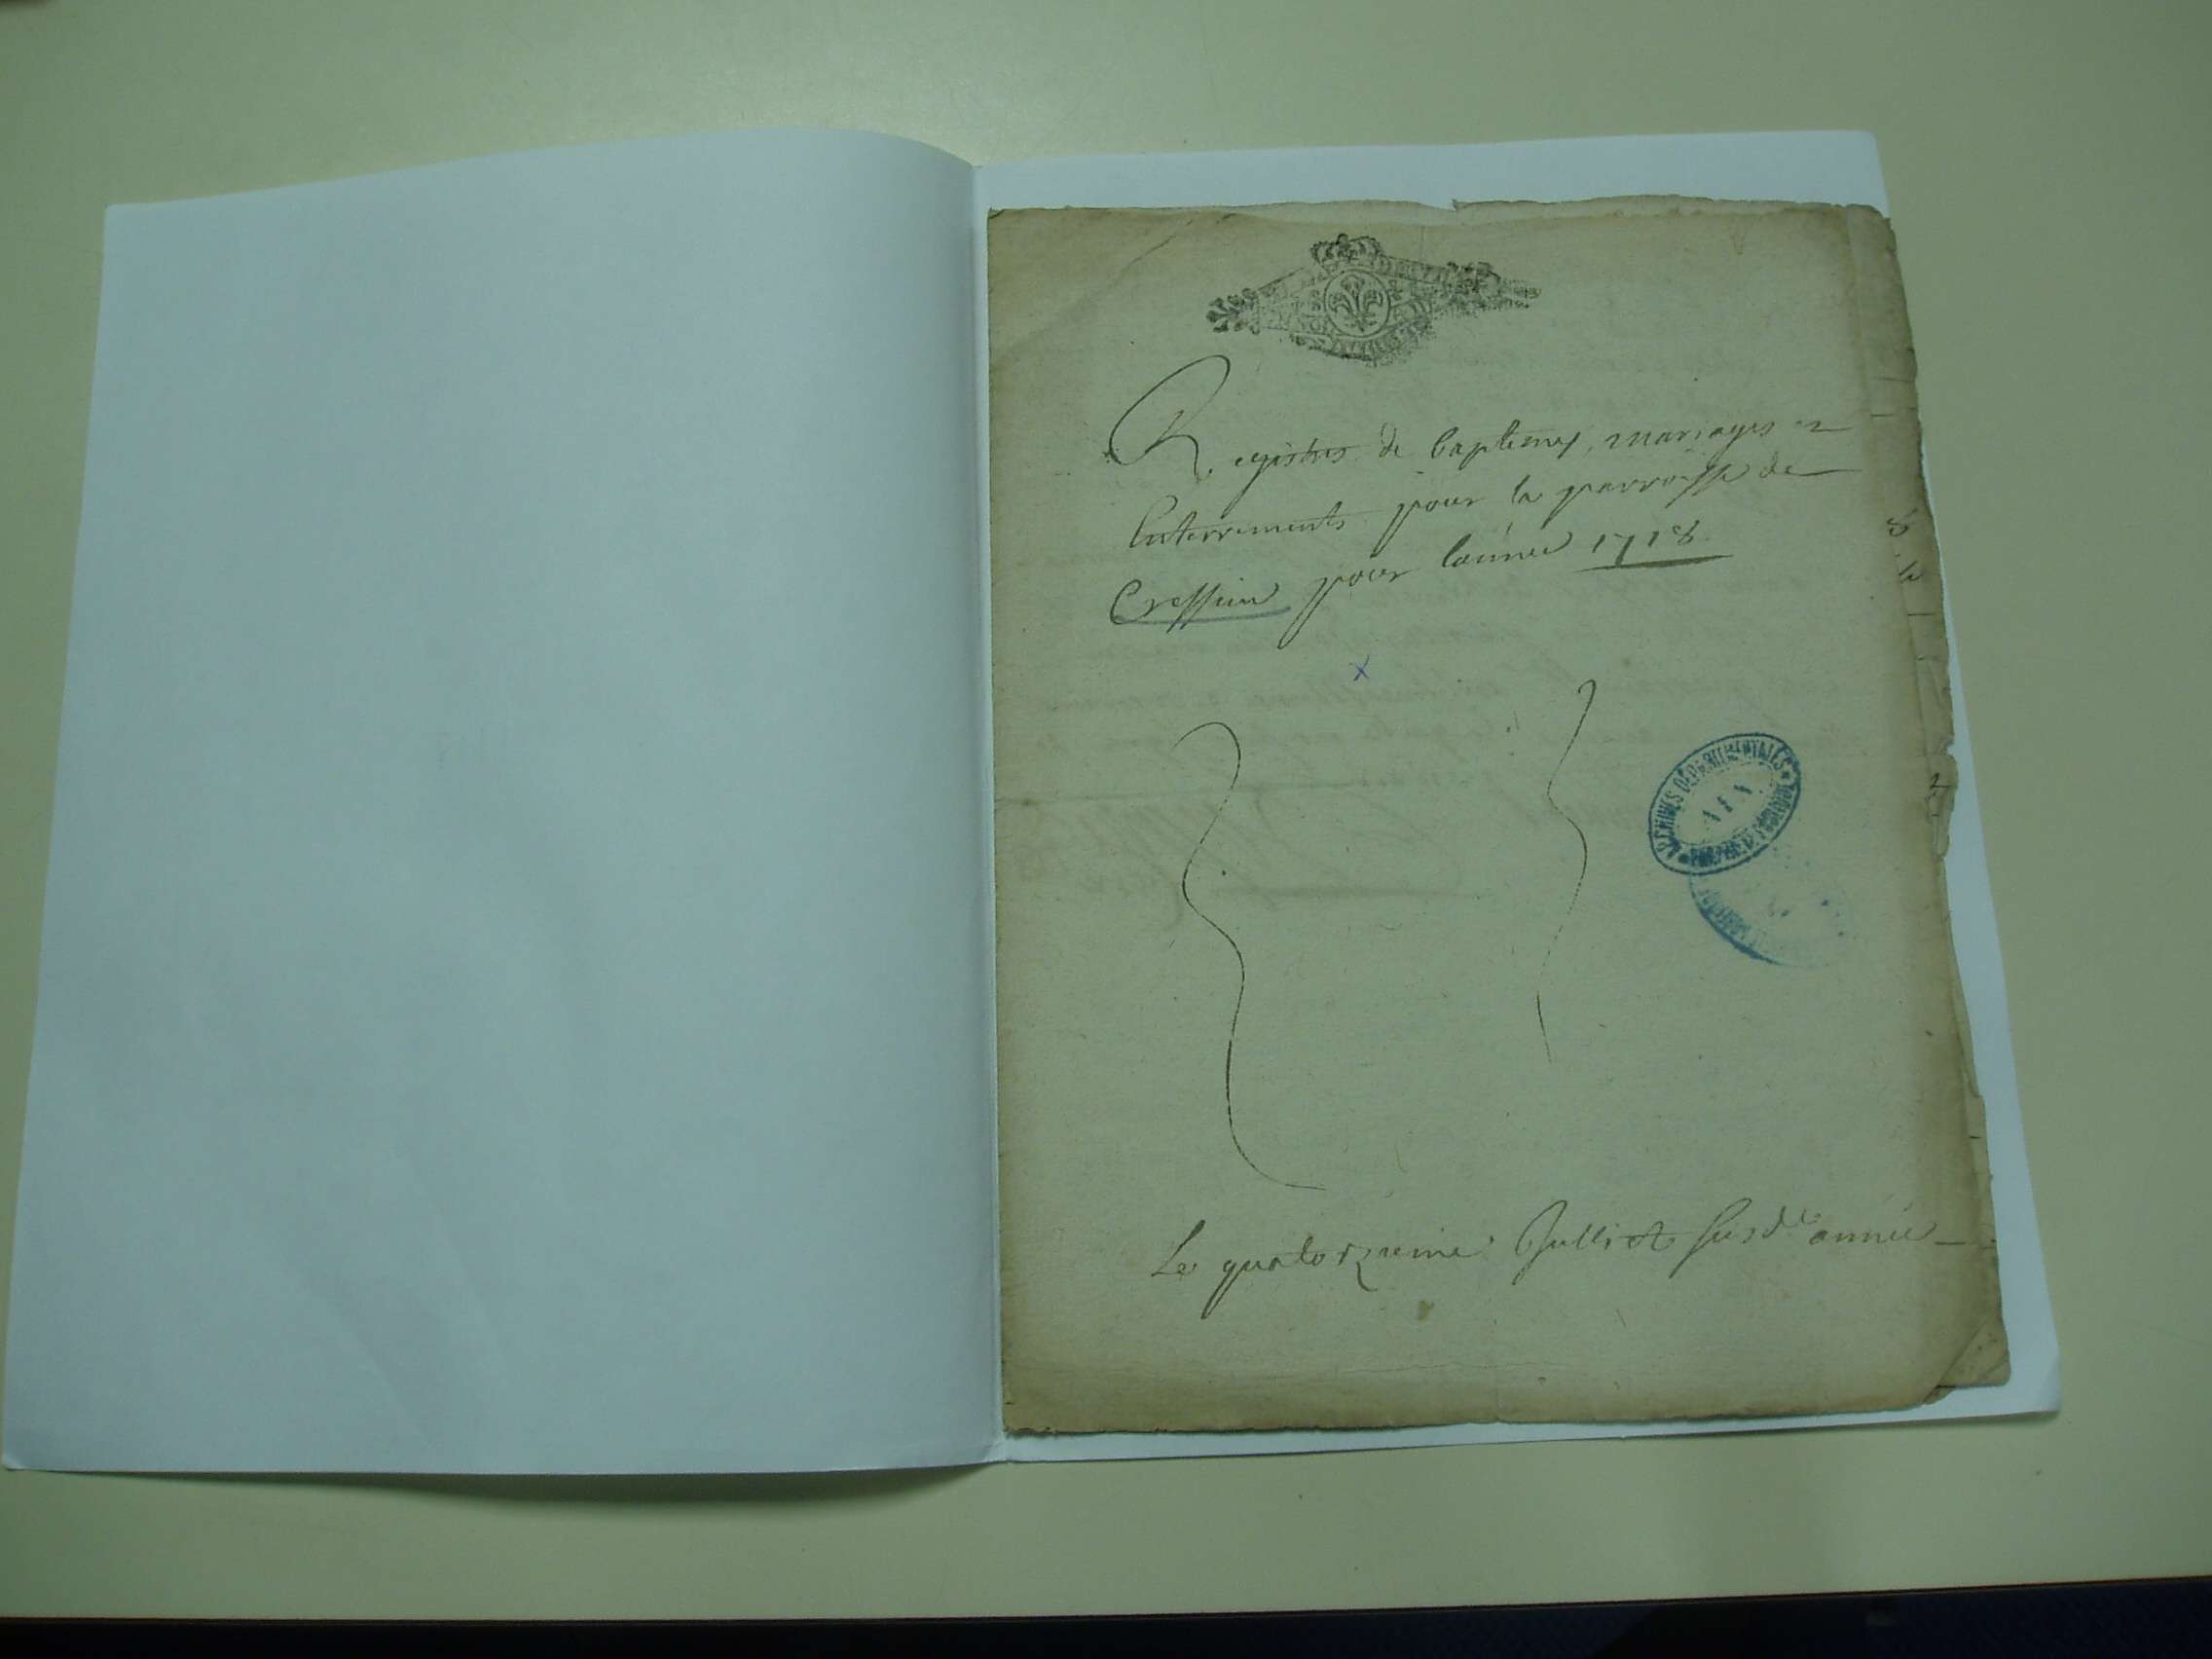 Registres de baptemes, mariages et
Enterrements pour la parroisse de
Cressieu pour l'année 1718
x
ARCHIVES DÉPARTEMENTALES
AIN
Le quatorzieme Julliet susd.e année